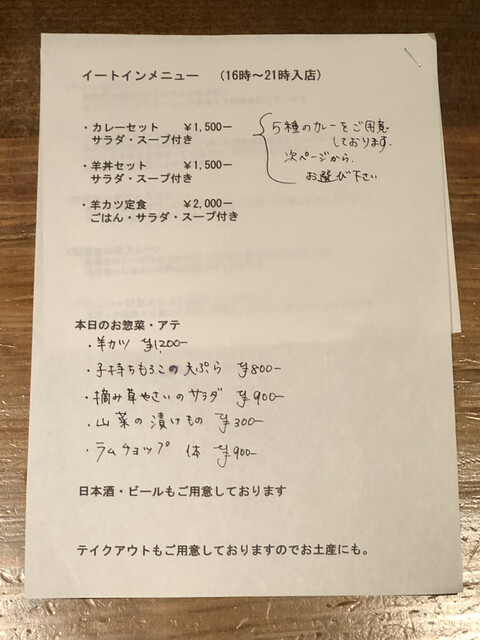 イートインメニュー　（16時～21時入店）
・カレーセット　￥1,500－
サラダ・スープ付き
5種のカレーをご用意
しております.
次ページから、
お選び下さい
・羊丼セット　￥1,500－
サラダ・スープ付き
・羊カツ定食　￥2,000－
ごはん・サラダ・スープ付き
本日のお惣菜・アテ
・羊カツ　¥1,200－
・子持ちもろこの天ぷら　¥800－
・摘み草やさいのサラダ　¥900－
・山菜の漬けもの　¥300－
・ラムチョップ　1本　¥900－
日本酒・ビールもご用意しております
テイクアウトもご用意しておりますのでお土産にも。